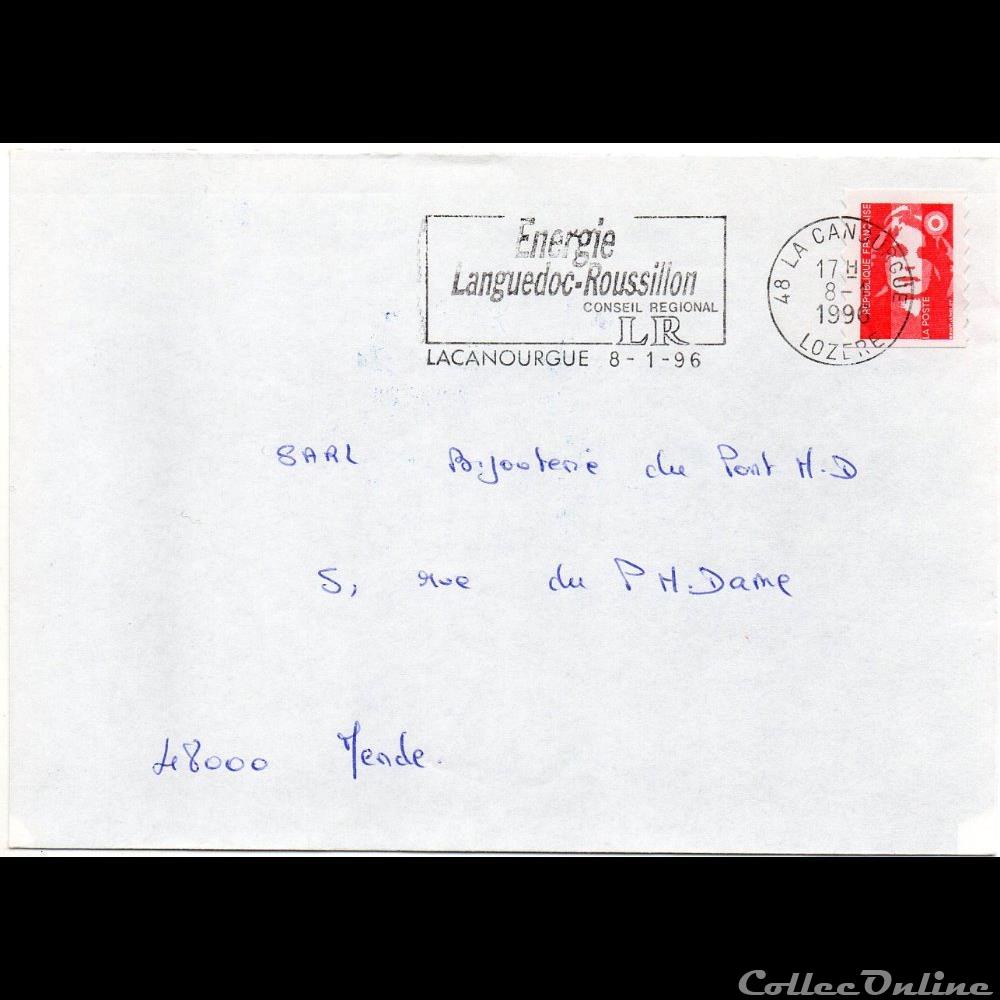 Energie
Languedoc-Roussillon
CONSEIL REGIONAL
LR
LACANOURGUE 8-1-96
48 LA CANOURGUE
17H
8-1
1996
LOZERE
REPUBLIQUE FRANÇAISE
LA POSTE
SARL Bijouterie du Pont N.D
5, rue du P N.Dame
48000 Mende.
CollecOnline